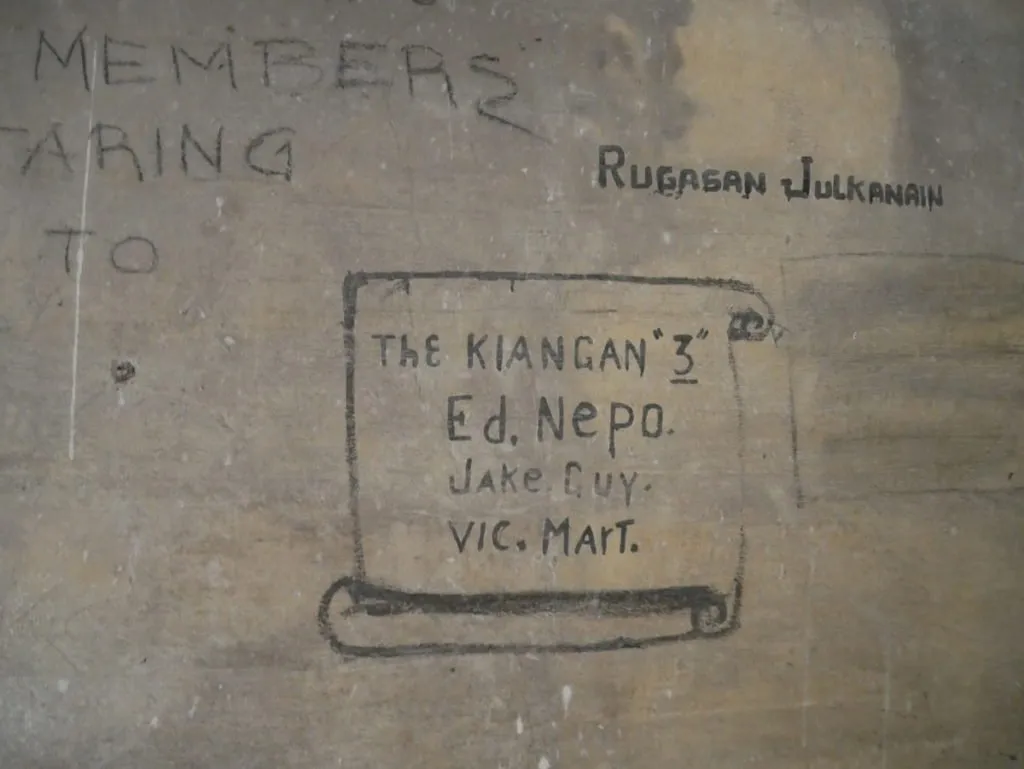 MEMBERS
TARING
TO
RUGASAN JULKANAIN
THE KIANGAN "3"
Ed. Nepo.
Jake Guy.
VIC. MarT.